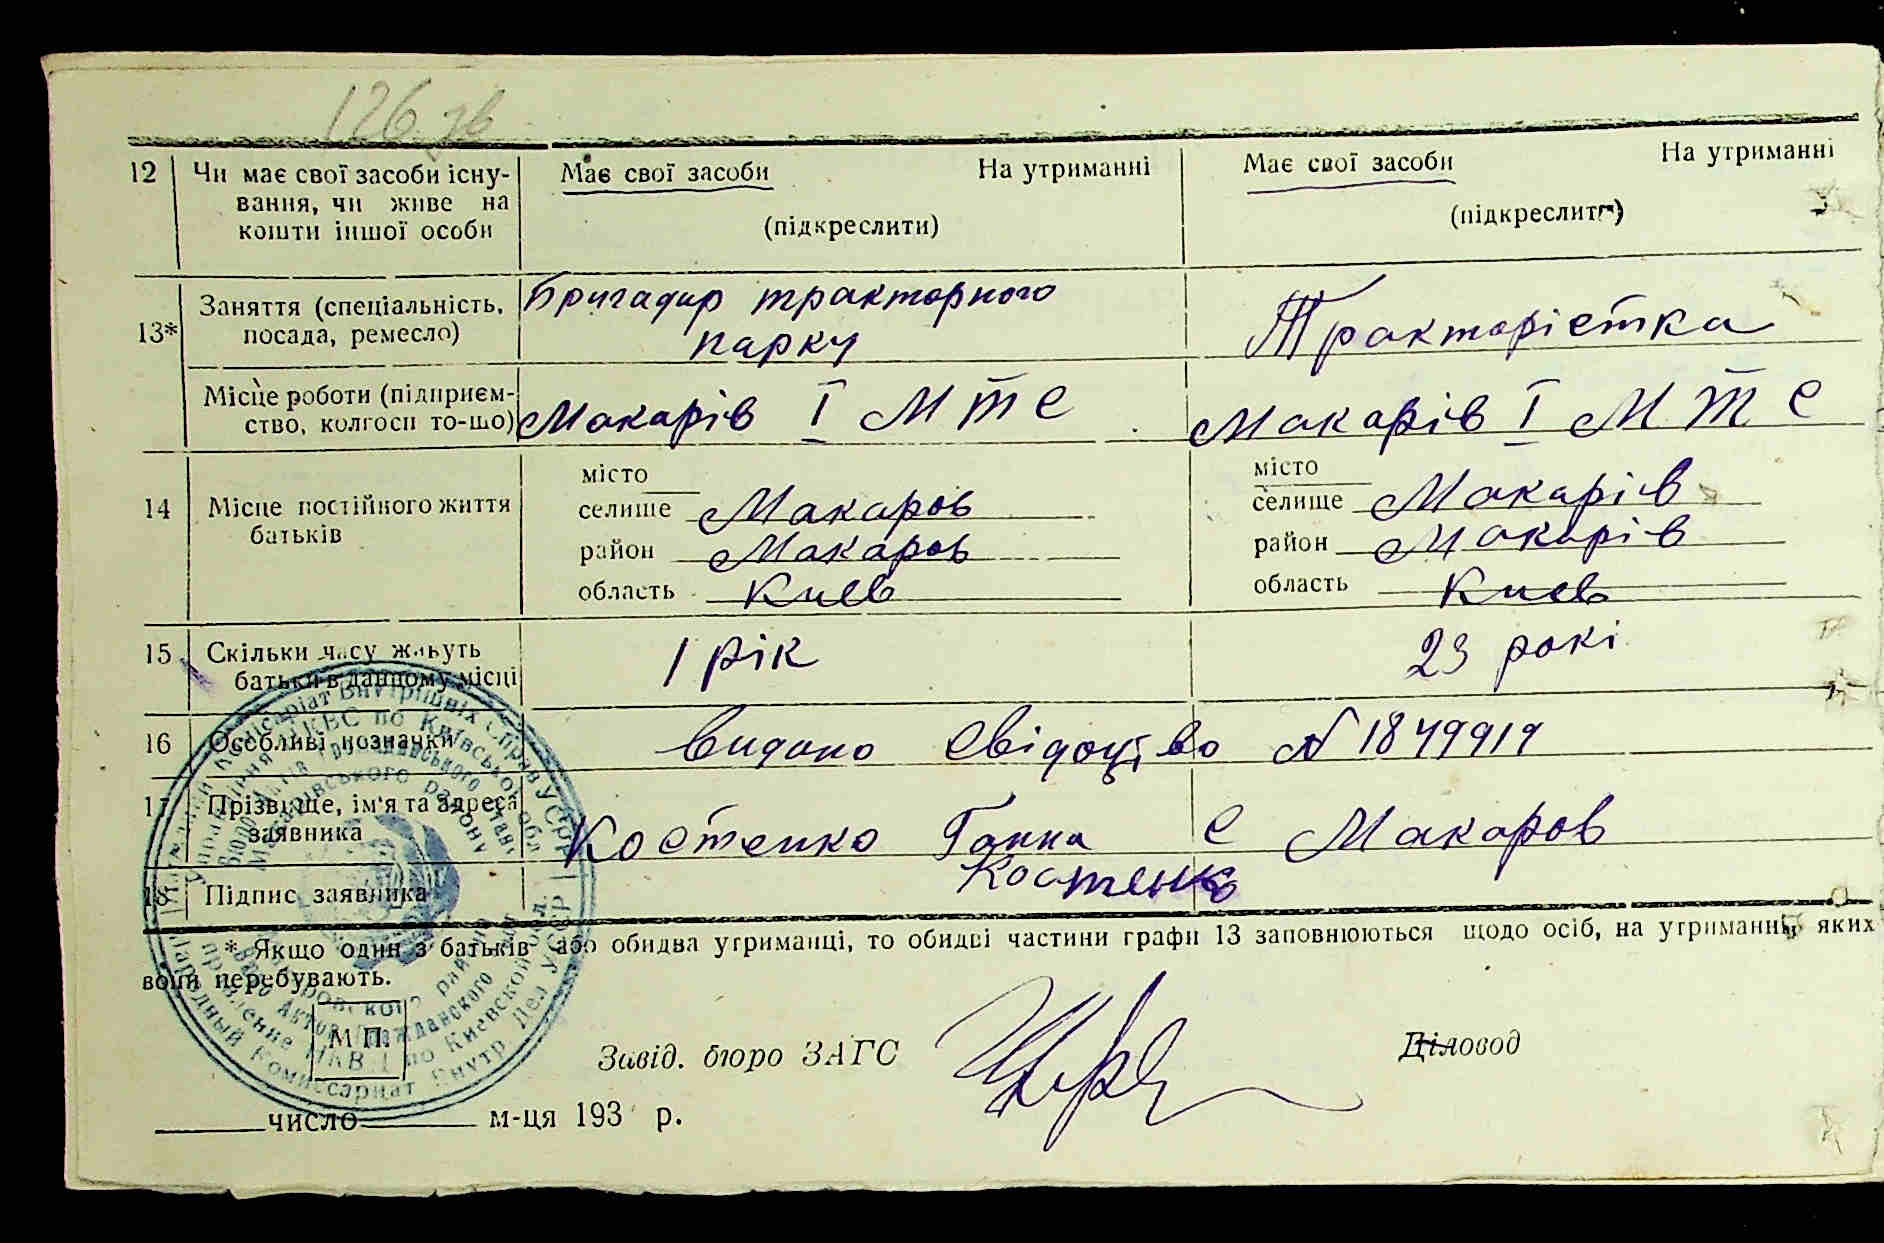 126 зв
12 Чи має свої засоби існу- Має свої засоби На утриманні Має свої засоби На утриманні
вання, чи живе на
кошти іншої особи (підкреслити) (підкреслити)
13* Заняття (спеціальність, Бригадир тракторного Трактористка
посада, ремесло) парку
Місце роботи (підприєм- Макарів I МТС Макарів I МТС
ство, колгосп то-що)
14 Місце постійного життя місто місто
батьків селище Макаров селище Макарів
район Макаров район Макарів
область Киев область Киев
15 Скільки часу живуть 1 рік 23 рокі
батьки в данному місці
16 Особливі позначки видано свідоцтво N 1849919
17 Прізвище, ім'я та адреса Костенко Ганна с Макаров
заявника
18 Підпис заявника Костенко
* Якщо один з батьків або обидва утриманці, то обидві частини графи 13 заповнюються щодо осіб, на утриманні яких
вони перебувають.
М П.
Завід. бюро ЗАГС Діловод
число м-ця 193 р.
Народний Комісаріат Внутрішніх Справ УСРР
Управління НКВС по Київської обл.
Макарівського району
Народный Комиссариат Внутр Дел УССР
Управление НКВД по Киевской обл.